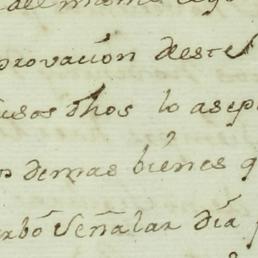 del mismo
provación deste
usos dhos lo asep
demas bienes q
rbó Señalar día